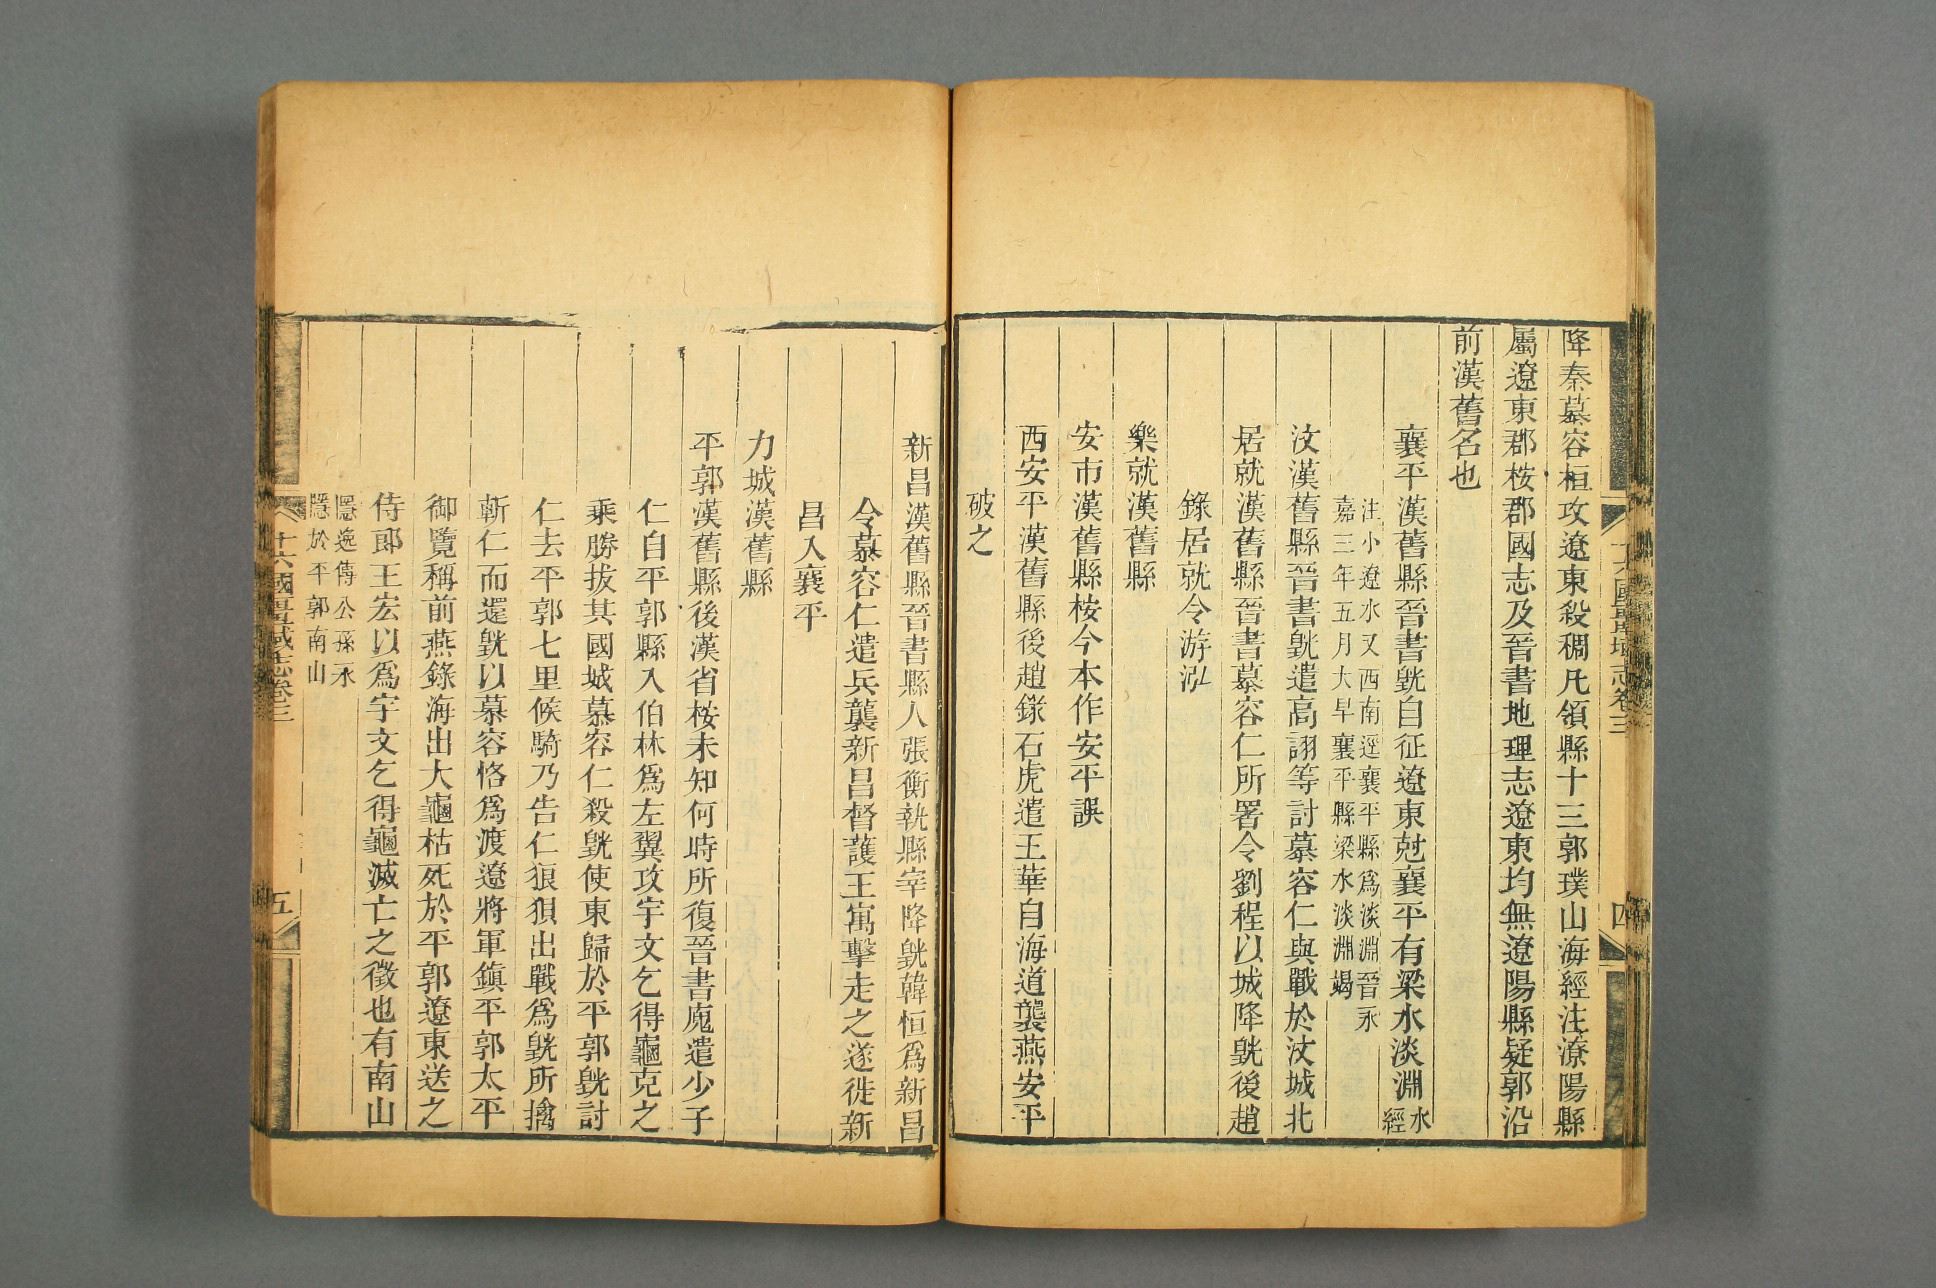 降秦慕容桓攻遼東殺稠凡領縣十三郭璞山海經注潦陽縣
屬遼東郡桉郡國志及晉書地理志遼東均無遼陽縣疑郭沿
前漢舊名也
襄平漢舊縣晉書皝自征遼東尅襄平有梁水淡淵水經
注小遼水又西南逕襄平縣爲淡淵晉永
嘉三年五月大旱襄平縣梁水淡淵竭
汶漢舊縣晉書皝遣高詡等討慕容仁與戰於汶城北
居就漢舊縣晉書慕容仁所署令劉程以城降皝後趙
錄居就令游泓
樂就漢舊縣
安市漢舊縣桉今本作安平誤
西安平漢舊縣後趙錄石虎遣王華自海道襲燕安平
破之
十六國疆域志卷三
四
新昌漢舊縣晉書縣人張衡執縣宰降皝韓恒爲新昌
令慕容仁遣兵襲新昌督護王寓擊走之遂徙新
昌入襄平
力城漢舊縣
平郭漢舊縣後漢省桉未知何時所復晉書廆遣少子
仁自平郭縣入伯林爲左翼攻宇文乞得龜克之
乘勝拔其國城慕容仁殺皝使東歸於平郭皝討
仁去平郭七里候騎乃告仁狼狽出戰爲皝所擒
斬仁而還皝以慕容恪爲渡遼將軍鎮平郭太平
御覽稱前燕錄海出大龜枯死於平郭遼東送之
侍郎王宏以爲宇文乞得龜滅亡之徵也有南山
隱逸傳公孫永
隱於平郭南山
十六國疆域志卷三
五